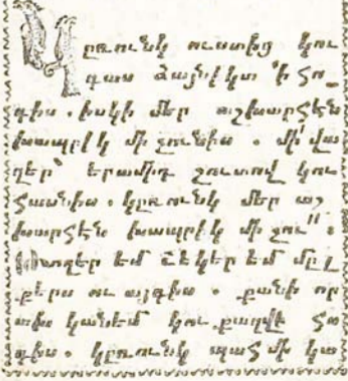 Կըռունկ ուստից կու
գաս ձայնիկտ 'ի հո_
գիս. իսկի մեր աշխարհէն
խապրիկ մի չունիս. մի՛ վա
զեր՝ երամիդ շուտով կու
հասնիս. կըռունկ մեր աշ
խարհէն խապրիկ մի չու" :
Թողեր եմ և եկեր եմ մըլ
քերս ու այգիս. քանի որ
ախ կանեմ կու քաղվէ հո
գիս. կըռունկ պահ մի կա